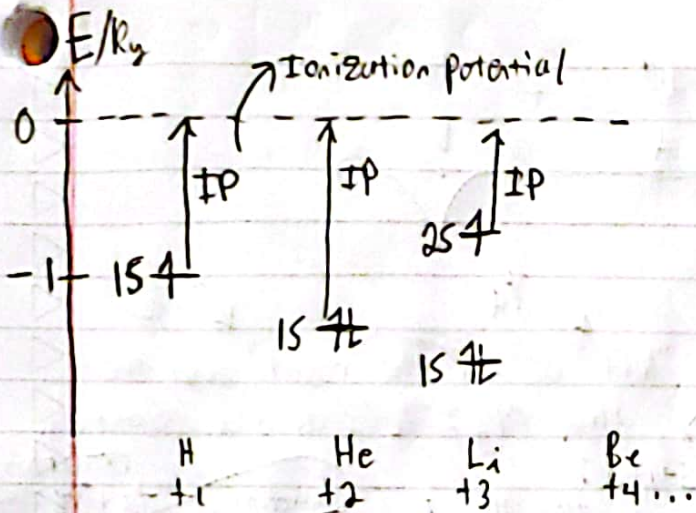 E/Ry
Ionization potential
0
IP IP IP
2S
-1 1S
1S
1S
H He Li Be
+1 +2 +3 +4...